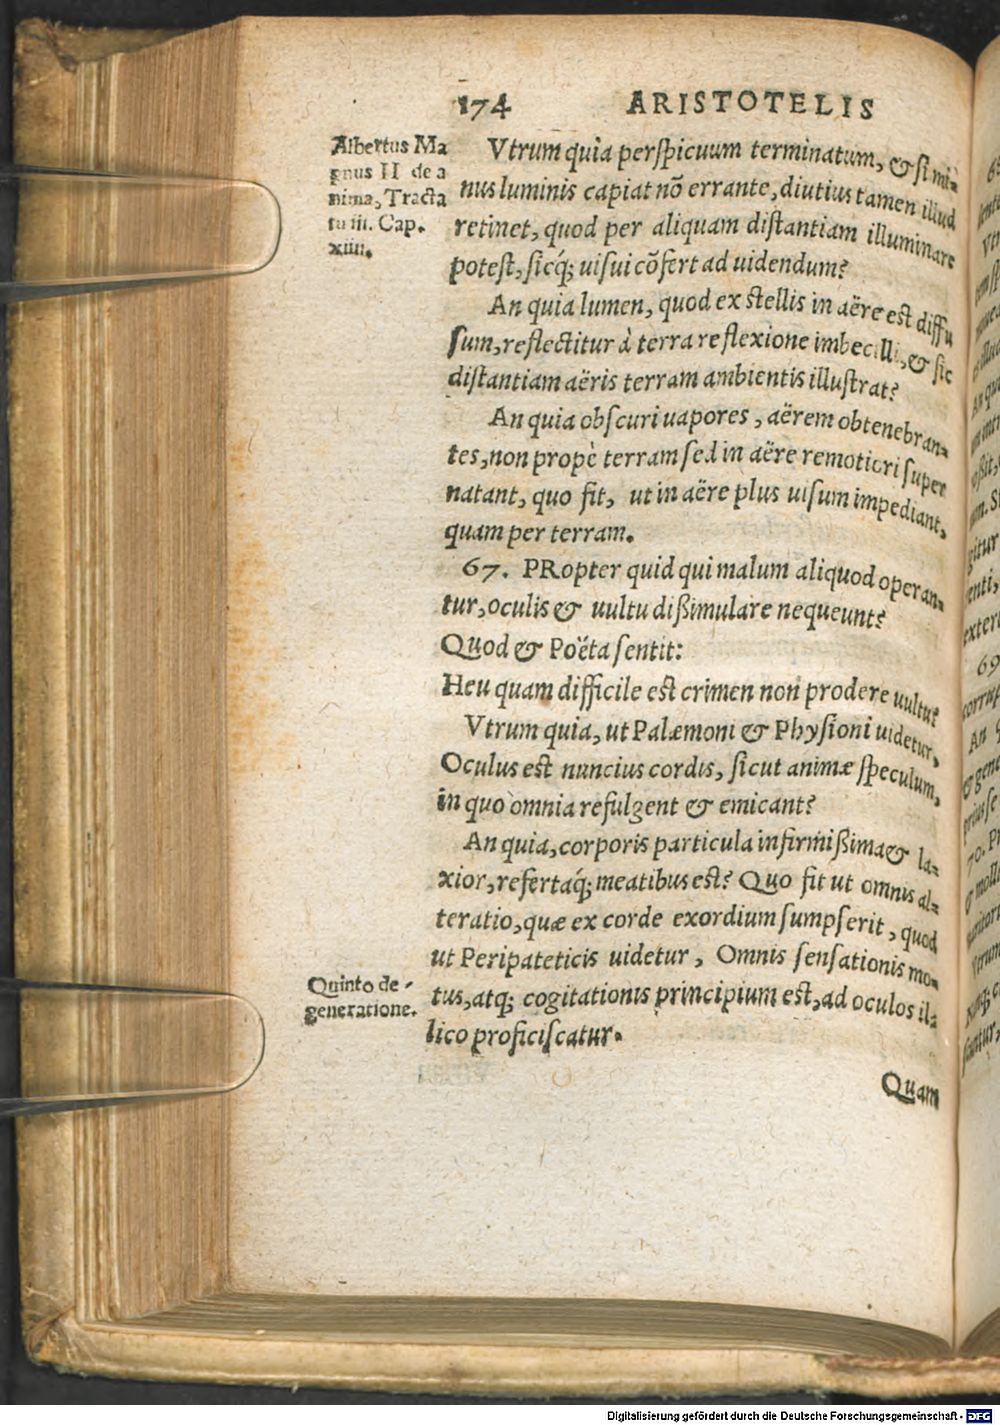 174 ARISTOTELIS
Albertus Ma
gnus II de a
nima, Tracta
tu iii. Cap.
xiiii.
Vtrum quia perspicuum terminatum, & si mi=
nus luminis capiat nō errante, diutius tamen illud
retinet, quod per aliquam distantiam illuminare
potest, sicq; uisui cōfert ad uidendum?
An quia lumen, quod ex stellis in aëre est diffu
sum, reflectitur à terra reflexione imbecilli, & sic
distantiam aëris terram ambientis illustrat?
An quia obscuri uapores, aërem obtenebran=
tes, non propè terram sed in aëre remotiori super
natant, quo fit, ut in aëre plus uisum impediant,
quam per terram.
67. PRopter quid qui malum aliquod operan=
tur, oculis & uultu dißimulare nequeunt?
Quod & Poëta sentit:
Heu quam difficile est crimen non prodere uultu?
Vtrum quia, ut Palæmoni & Physioni uidetur,
Oculus est nuncius cordis, sicut animæ speculum,
in quo omnia refulgent & emicant?
An quia, corporis particula infirmißima & la=
xior, refertaq́; meatibus est? Quo fit ut omnis al=
teratio, quæ ex corde exordium sumpserit, quod
ut Peripateticis uidetur, Omnis sensationis mo=
Quinto de
generatione.
tus, atq; cogitationis principium est, ad oculos il=
lico proficiscatur.
Quam
Digitalisierung gefördert durch die Deutsche Forschungsgemeinschaft - DFG